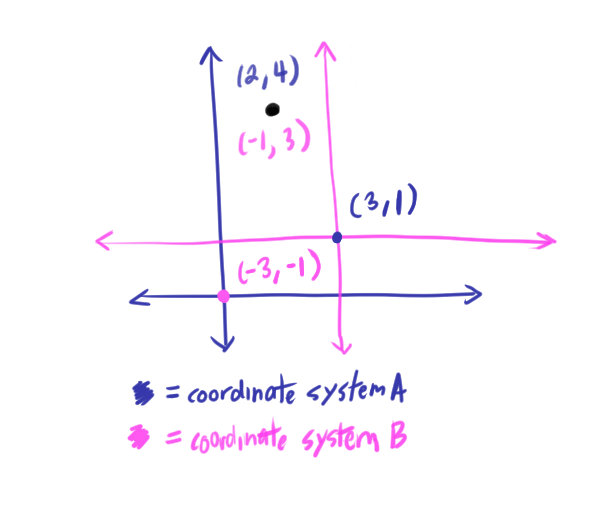 (2,4)
(-1,3)
(3,1)
(-3,-1)
= coordinate system A
= coordinate system B